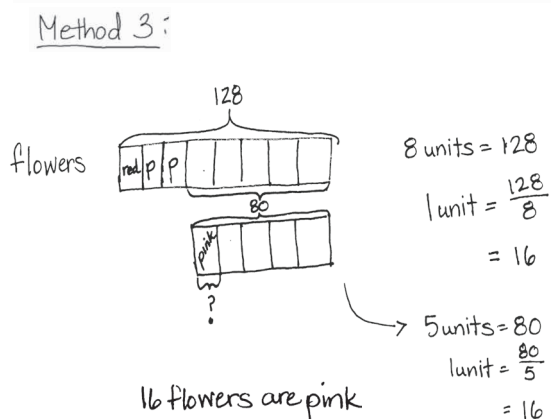 Method 3:
128
flowers
red p p
80
pink
?
8 units = 128
1 unit = 128/8
= 16
5 units = 80
1 unit = 80/5
= 16
16 flowers are pink